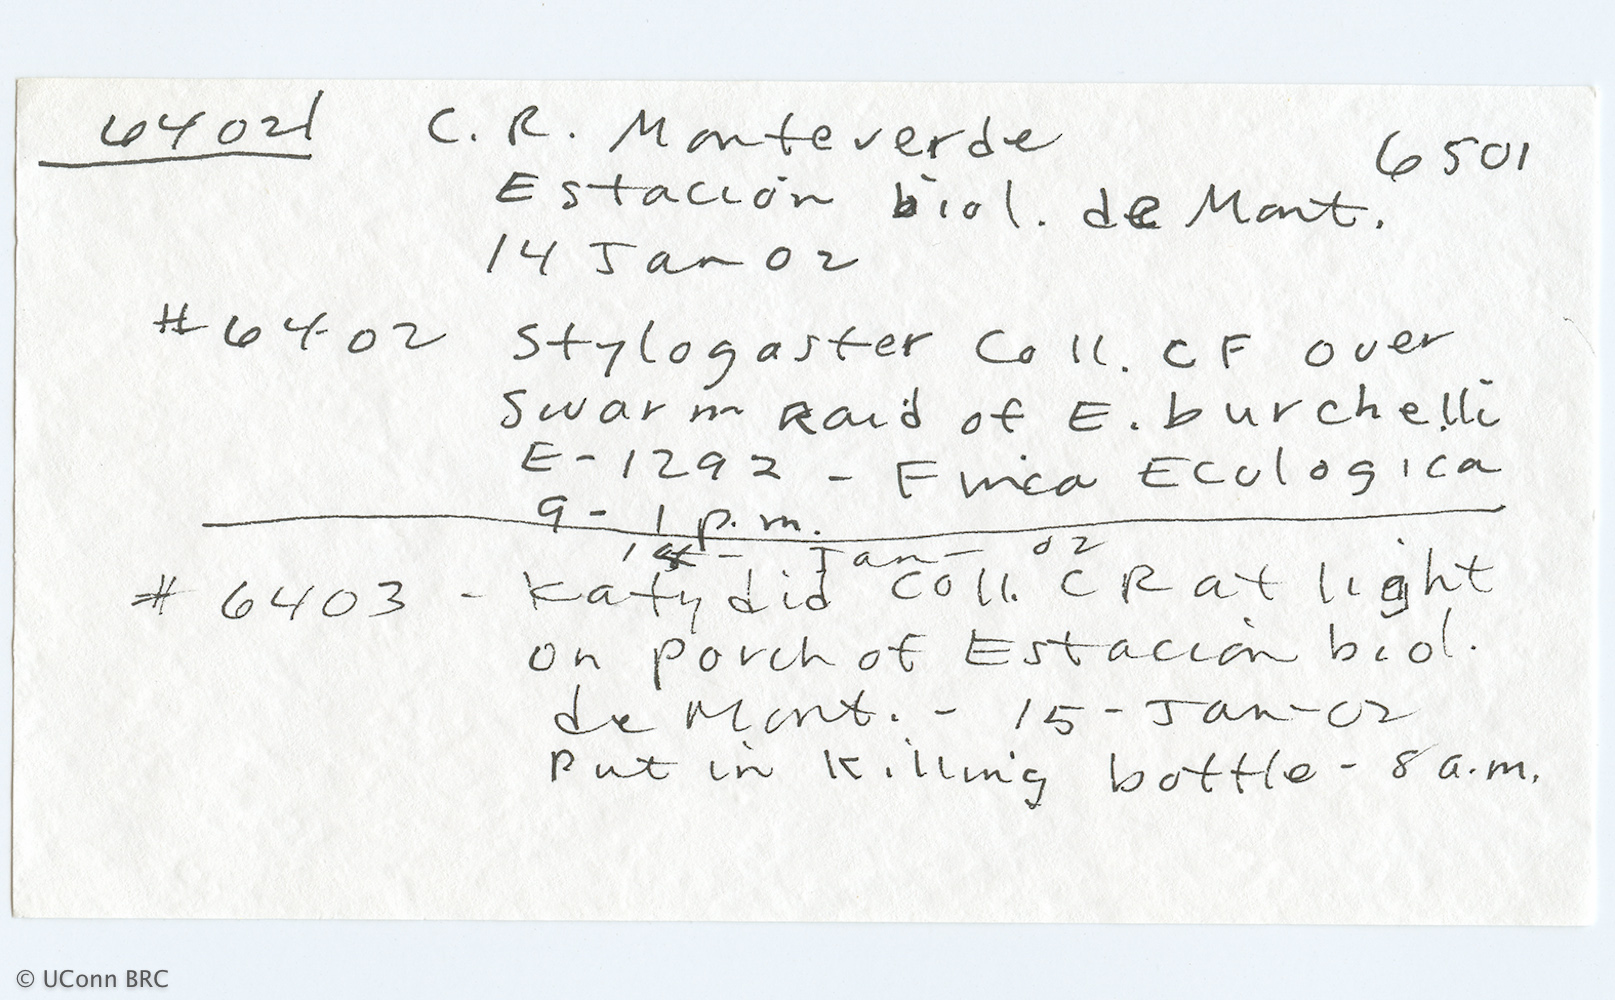 6402 C. R. Monteverde 6501
Estación biol. de Mont.
14 Jan 02
#6402 Stylogaster Coll. CF over
swarm Raid of E. burchelli
E-1292 - Finca Ecologica
9 - 1 p.m.
Jan - 02
#6403 - Katydid Coll. CR at light
on porch of Estación biol.
de Mont. - 15-Jan-02
Put in killing bottle - 8 a.m.
© UConn BRC